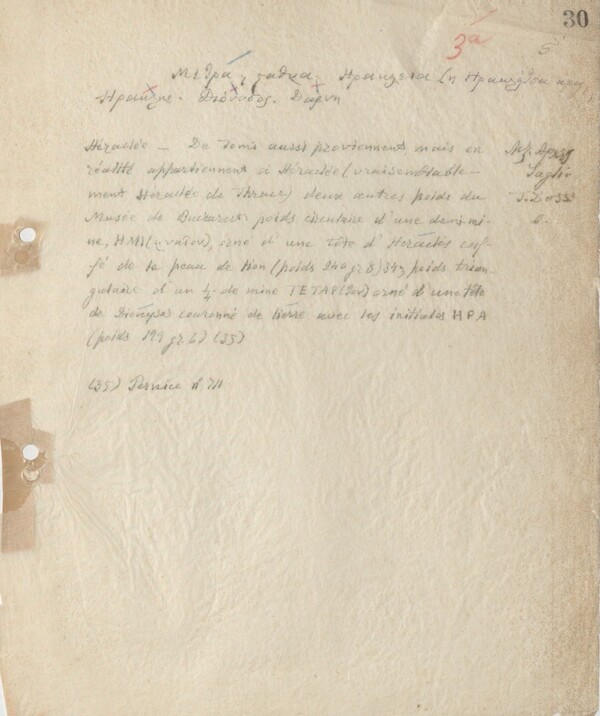 30
3ª 5
Μέτρα, σταθμα, Ηρακλεια (η Ηρακλεια
Ηρακλης. Διόνυσος. Δαφνη
Héraclée — De Tomis aussi proviennent mais en
réalité appartiennent à Héraclée (vraisemblable-
ment Héraclée de Thrace) deux autres poids du
Musée de Bucarest: poids circulaire d'une demi mi-
ne, ΗΜΙ(μναῖον), orné d'une tête d'Héraclès coif-
fé de la peau de lion (poids 240 gr 8) 34) poids trian-
gulaire d'un 1/4 de mine ΤΕΤΑΡ(τον) orné d'une tête
de Dionysos couronné de lierre avec les initiales ΗΡΑ
(poids 199 gr 6) (35)
Saglio
(35) Pernice nº 711